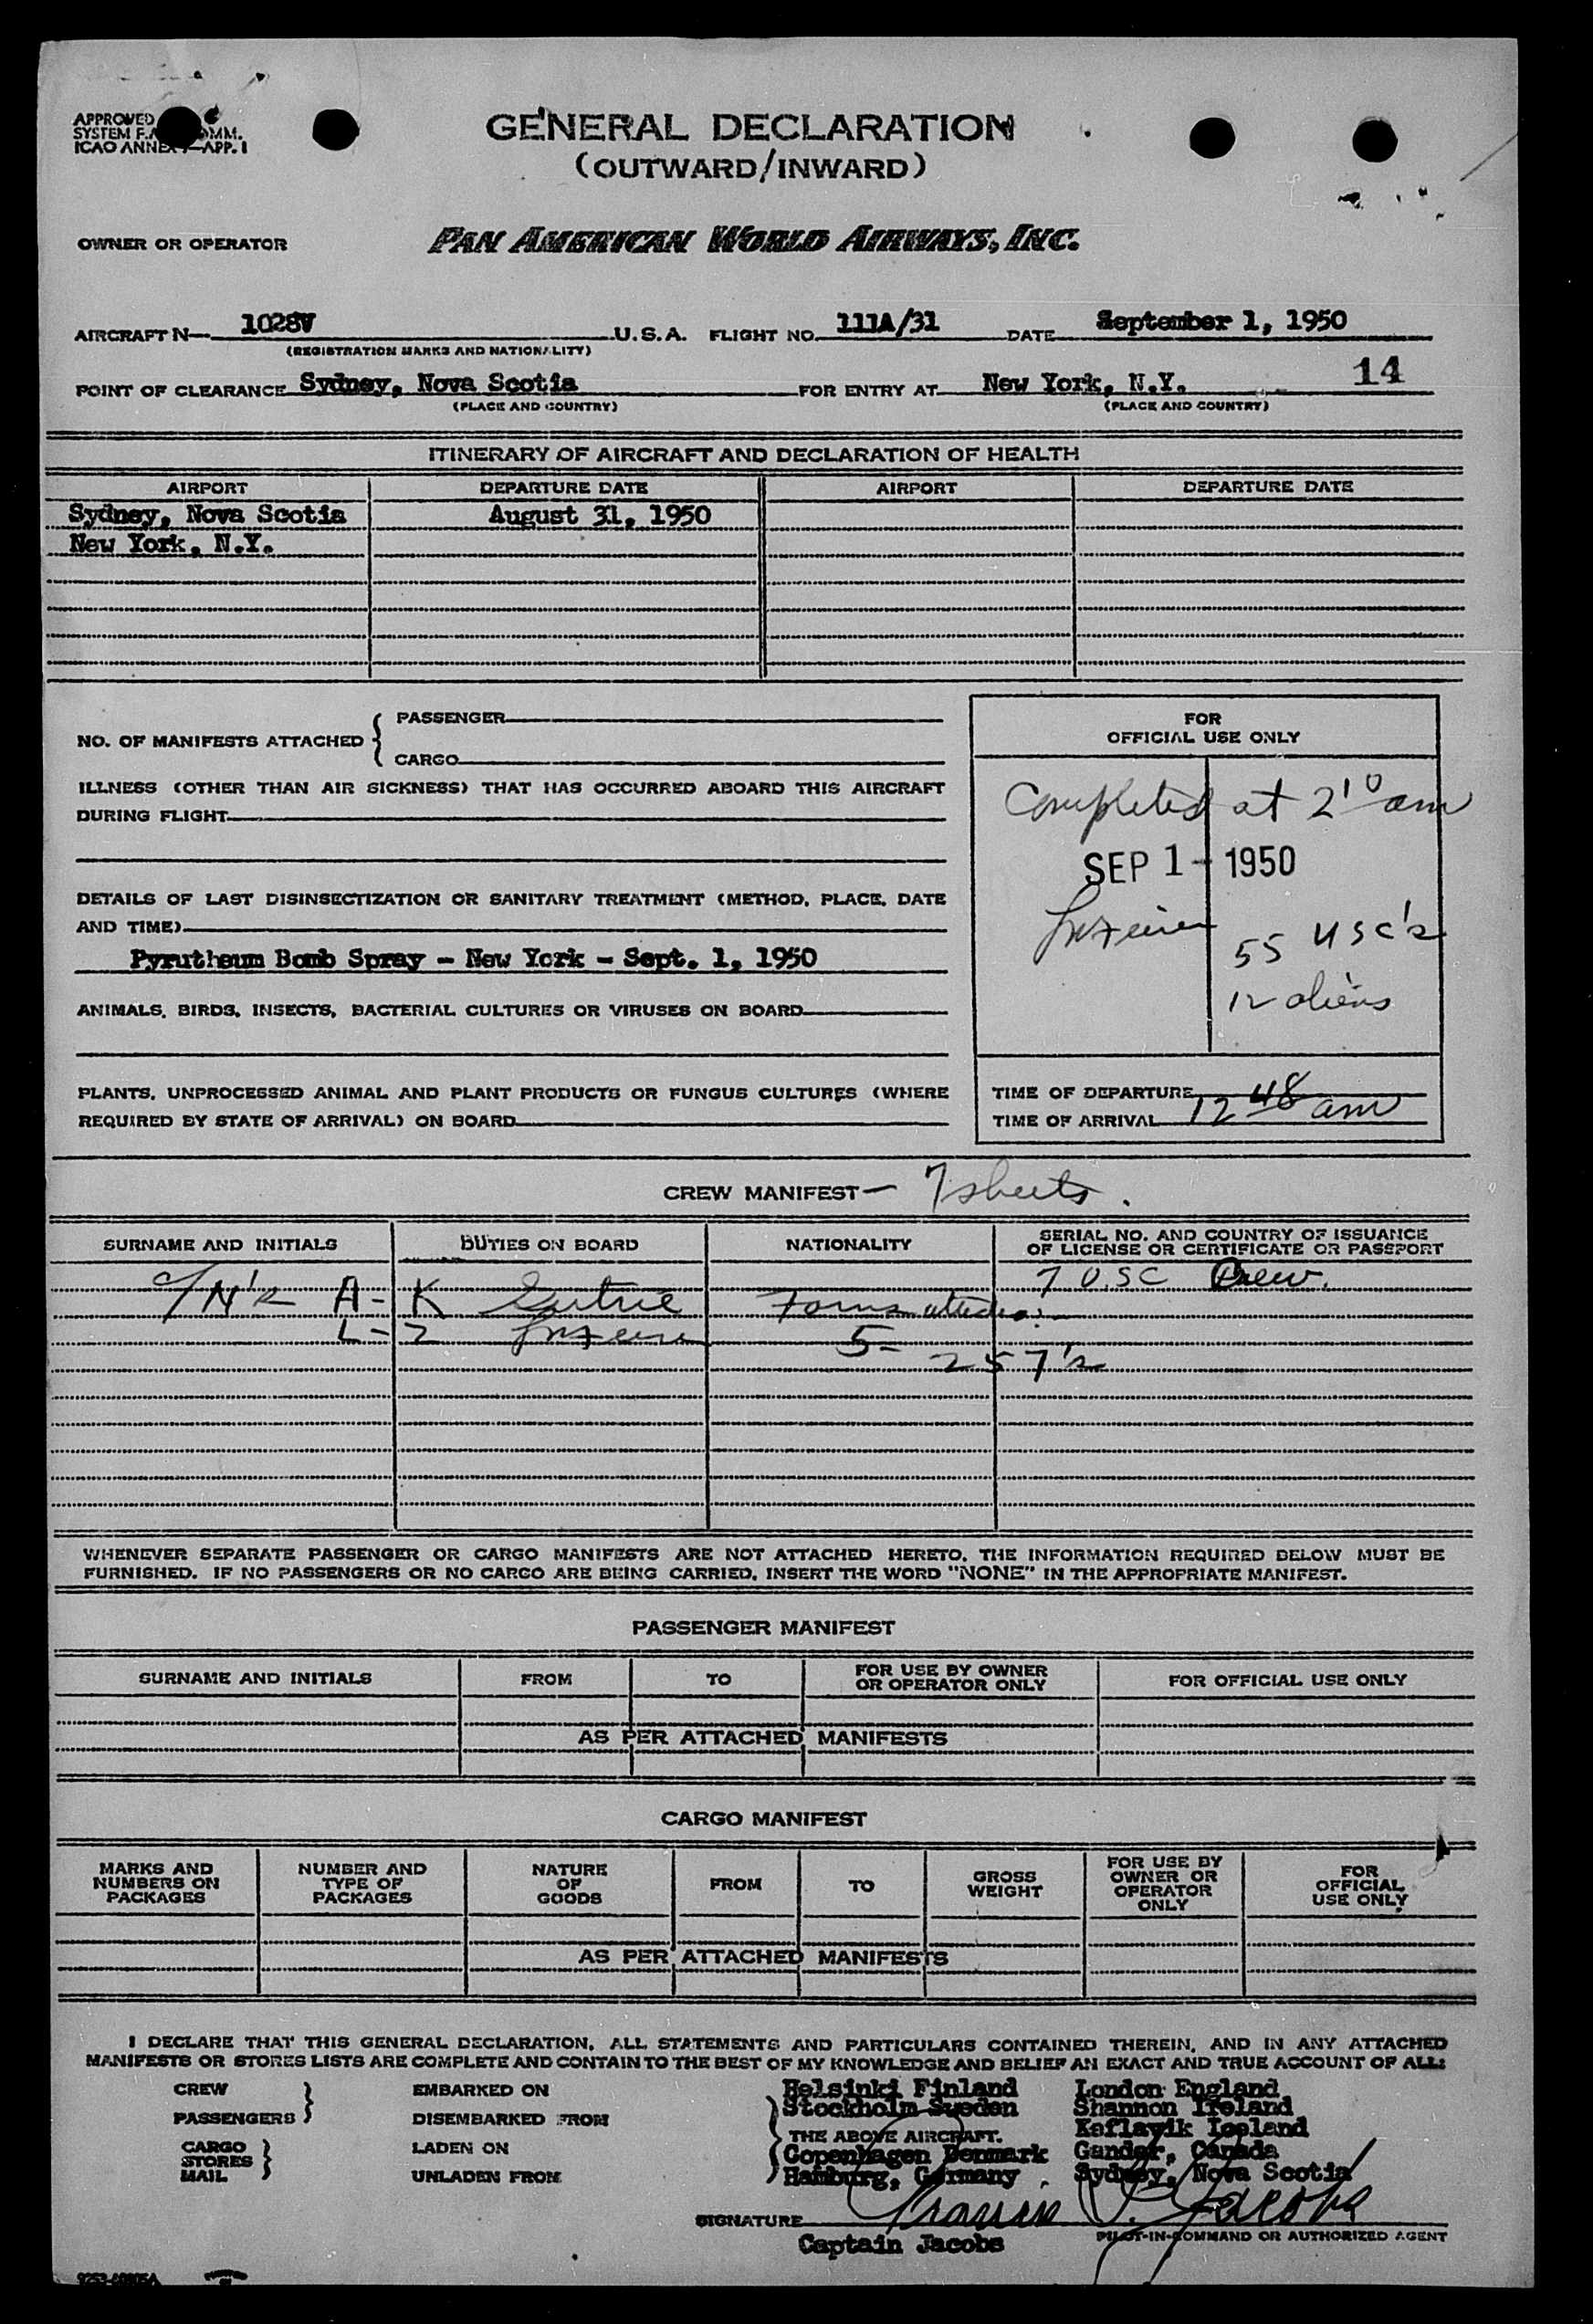 APPROVED
SYSTEM
ICAO ANNEX APP. 1
GENERAL DECLARATION
(OUTWARD/INWARD)
OWNER OR OPERATOR PAN AMERICAN WORLD AIRWAYS, INC.
AIRCRAFT N— 1028V U.S.A. FLIGHT NO. 111A/31 DATE September 1, 1950
(REGISTRATION MARKS AND NATIONALITY)
POINT OF CLEARANCE Sydney, Nova Scotia FOR ENTRY AT New York, N.Y. 14
(PLACE AND COUNTRY) (PLACE AND COUNTRY)
ITINERARY OF AIRCRAFT AND DECLARATION OF HEALTH
AIRPORT DEPARTURE DATE AIRPORT DEPARTURE DATE
Sydney, Nova Scotia August 31, 1950
New York, N.Y.
NO. OF MANIFESTS ATTACHED { PASSENGER
CARGO
ILLNESS (OTHER THAN AIR SICKNESS) THAT HAS OCCURRED ABOARD THIS AIRCRAFT
DURING FLIGHT
DETAILS OF LAST DISINSECTIZATION OR SANITARY TREATMENT (METHOD, PLACE, DATE
AND TIME)
Pyrutheum Bomb Spray - New York - Sept. 1, 1950
ANIMALS, BIRDS, INSECTS, BACTERIAL CULTURES OR VIRUSES ON BOARD
PLANTS, UNPROCESSED ANIMAL AND PLANT PRODUCTS OR FUNGUS CULTURES (WHERE
REQUIRED BY STATE OF ARRIVAL) ON BOARD
FOR
OFFICIAL USE ONLY
Completed at 2 10 am
SEP 1 - 1950
55 USC's
12 aliens
TIME OF DEPARTURE
TIME OF ARRIVAL 12 48 am
CREW MANIFEST — 7 sheets.
SURNAME AND INITIALS DUTIES ON BOARD NATIONALITY SERIAL NO. AND COUNTRY OF ISSUANCE
OF LICENSE OR CERTIFICATE OR PASSPORT
7 USC Crew.
A - K Forms
L - Z 5 -
257's
WHENEVER SEPARATE PASSENGER OR CARGO MANIFESTS ARE NOT ATTACHED HERETO, THE INFORMATION REQUIRED BELOW MUST BE
FURNISHED. IF NO PASSENGERS OR NO CARGO ARE BEING CARRIED, INSERT THE WORD "NONE" IN THE APPROPRIATE MANIFEST.
PASSENGER MANIFEST
SURNAME AND INITIALS FROM TO FOR USE BY OWNER
OR OPERATOR ONLY FOR OFFICIAL USE ONLY
AS PER ATTACHED MANIFESTS
CARGO MANIFEST
MARKS AND
NUMBERS ON
PACKAGES
NUMBER AND
TYPE OF
PACKAGES
NATURE
OF
GOODS
FROM
TO
GROSS
WEIGHT
FOR USE BY
OWNER OR
OPERATOR
ONLY
FOR
OFFICIAL
USE ONLY
AS PER ATTACHED MANIFESTS
I DECLARE THAT THIS GENERAL DECLARATION, ALL STATEMENTS AND PARTICULARS CONTAINED THEREIN, AND IN ANY ATTACHED
MANIFESTS OR STORES LISTS ARE COMPLETE AND CONTAIN TO THE BEST OF MY KNOWLEDGE AND BELIEF AN EXACT AND TRUE ACCOUNT OF ALL:
CREW EMBARKED ON Helsinki Finland London England
Stockholm Sweden Shannon Ireland
PASSENGERS DISEMBARKED FROM Keflavik Iceland
THE ABOVE AIRCRAFT.
CARGO LADEN ON Copenhagen Denmark Gander, Canada
STORES
MAIL UNLADEN FROM Hamburg, Germany Sydney, Nova Scotia
SIGNATURE Francis P. Jacobs
Captain Jacobs PILOT-IN-COMMAND OR AUTHORIZED AGENT